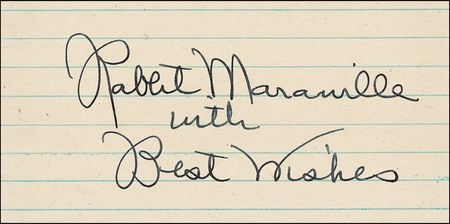 Rabbit Maranville
with
Best Wishes